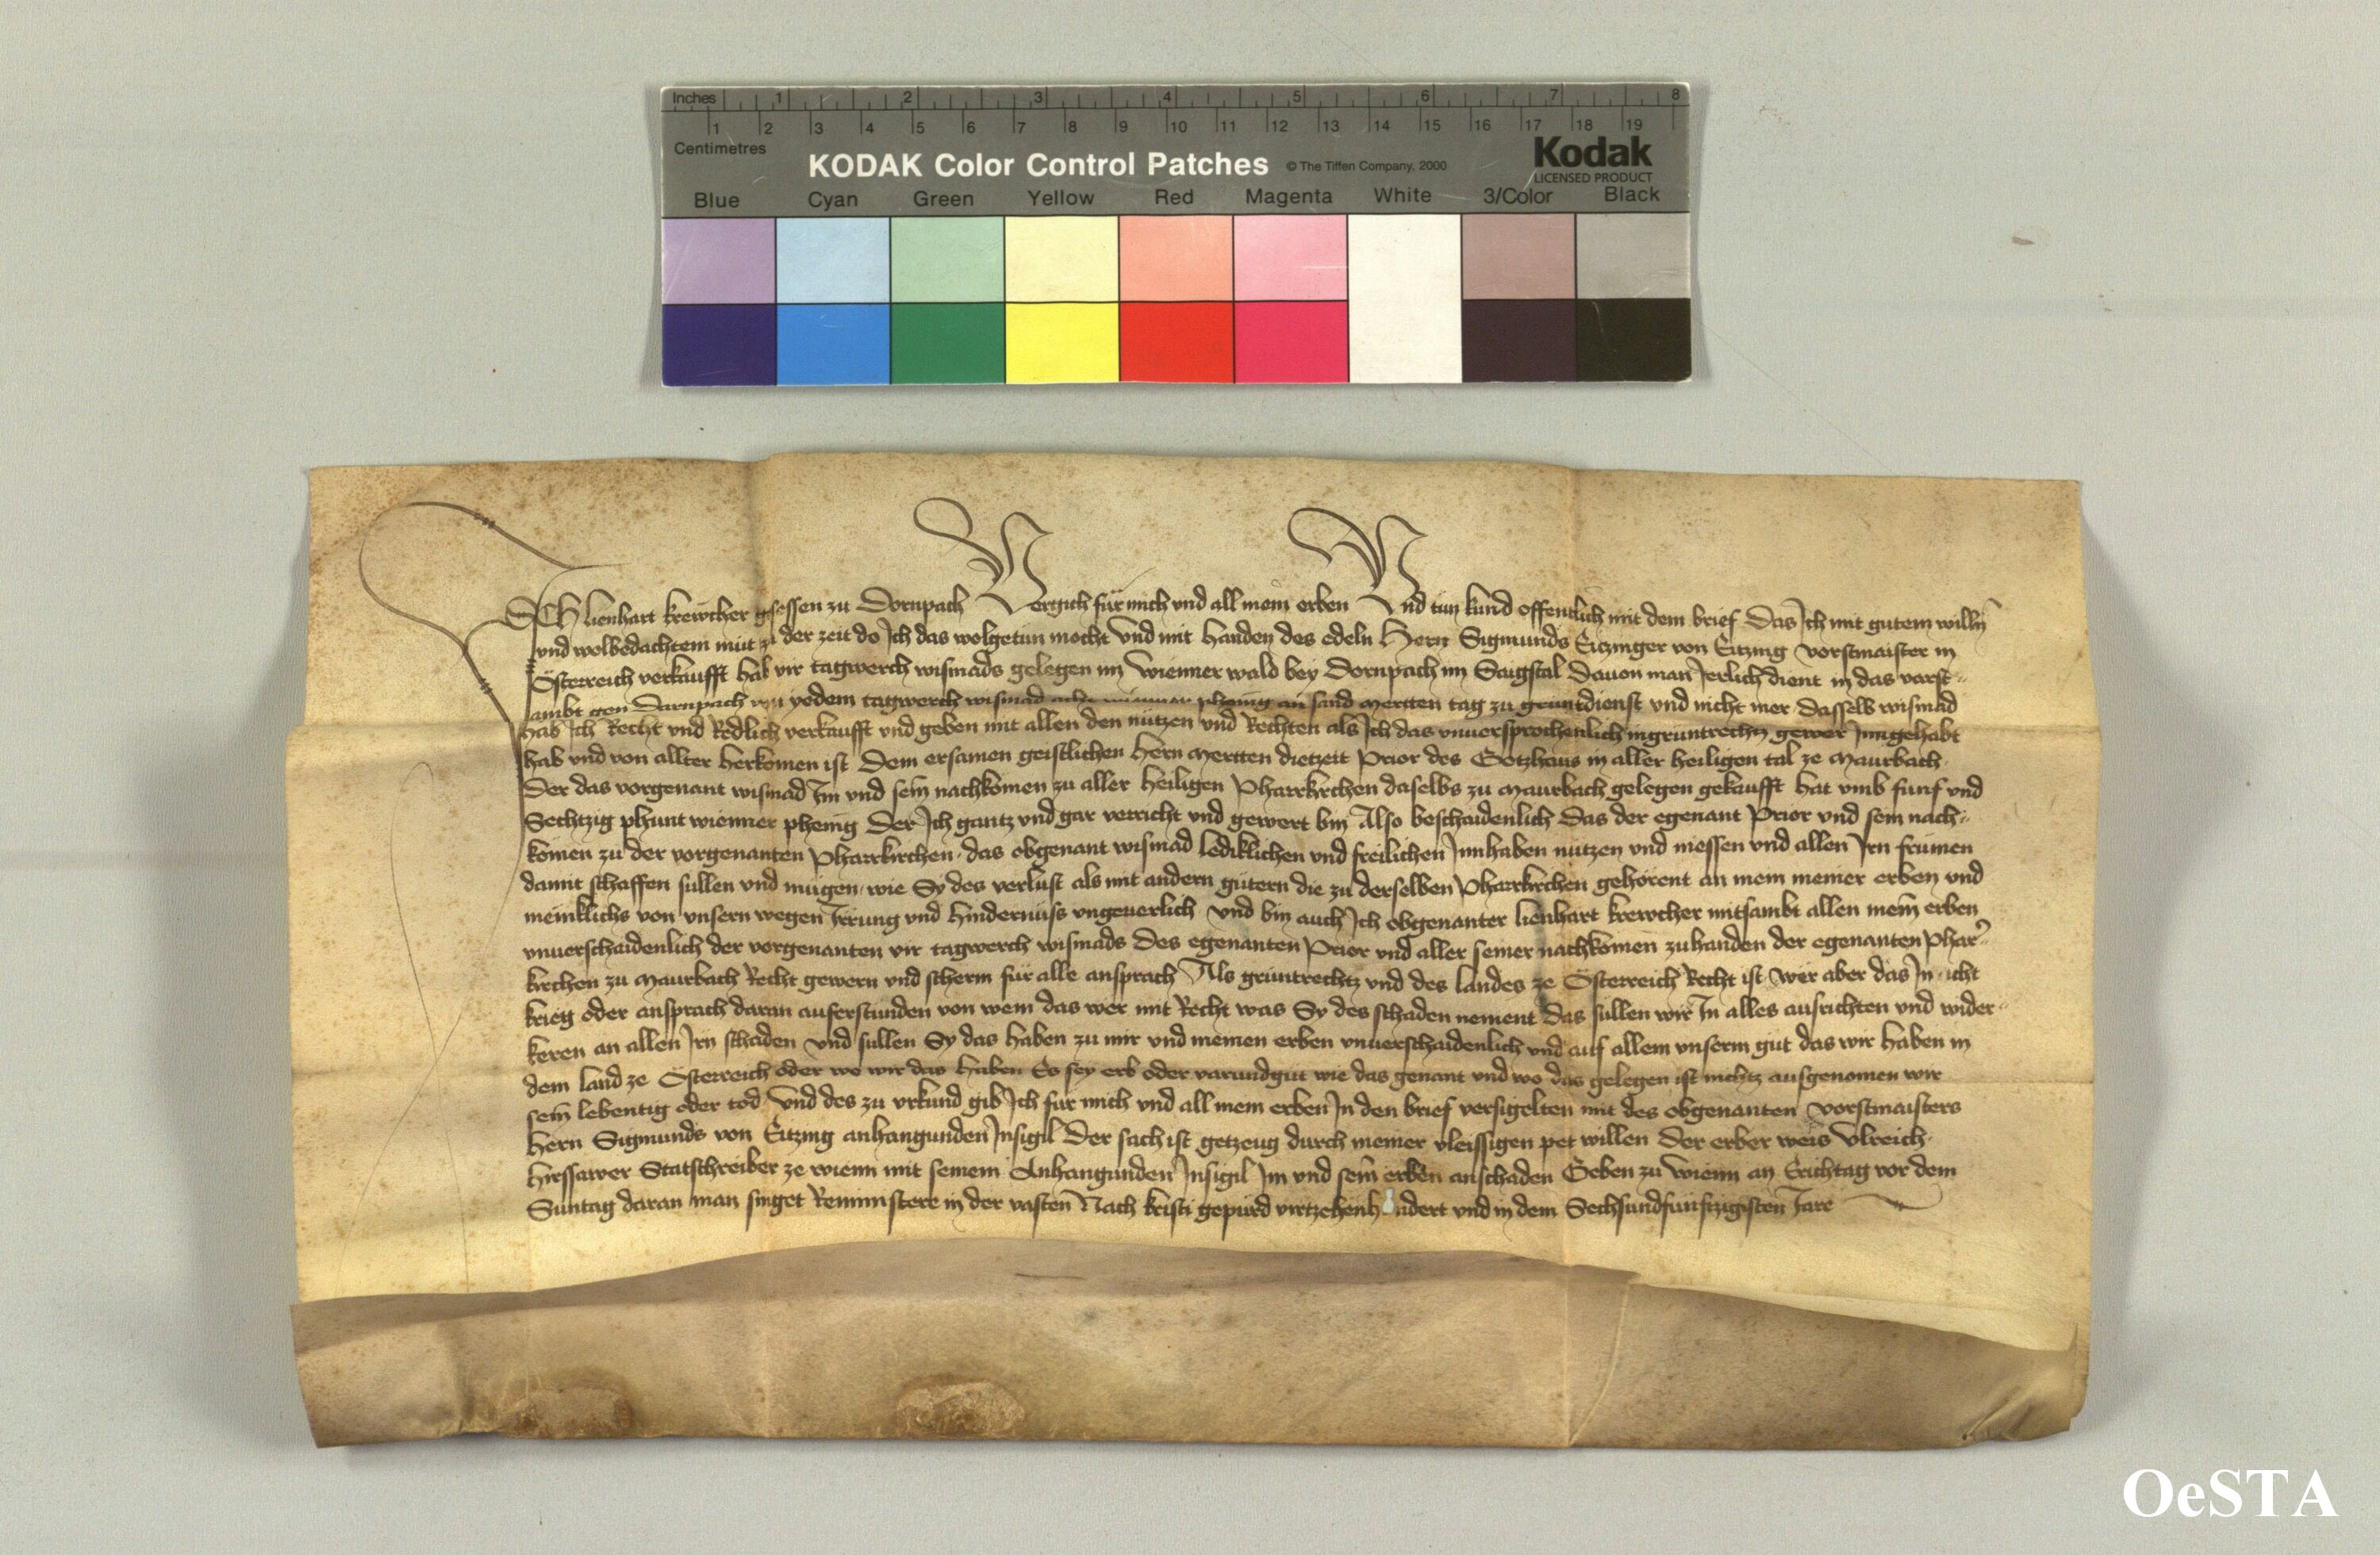 Inches 1 2 3 4 5 6 7 8
1 2 3 4 5 6 7 8 9 10 11 12 13 14 15 16 17 18 19
Centimetres
KODAK Color Control Patches © The Tiffen Company, 2000 Kodak
LICENSED PRODUCT
Blue Cyan Green Yellow Red Magenta White 3/Color Black
Ich lienhart krewcher gsessen zu Dornpach Vergich für mich vnd all mein erben Vnd tun kund offentlich mit dem brief Das Ich mit gutem willn
vnd wolbedachtem müt zu der zeit do Ich das wolgetun mocht Vnd mit handen des edeln Hern Sigmunds Eitzinger von Eitzing vorstmaister in
Österreich verkaufft hab vir tagwerch wismads gelegen im Wienner wald bey Dornpach im Saigstal Dauon man Jerlich dient in das vorst-
ambt gen Darnpach von yedem tagwerch wismad wienner phenig an sand Mertten tag zu gruntdienst vnd nicht mer Dasselb wismad
hab Ich Recht vnd Redlich verkaufft vnd geben mit allen den nützen vnd Rechten als Ich das vnuersprochenlich in gruntrechtz gewer Inngehabt
hab vnd von allter herkomen ist Dem ersamen geistlichen hern Mertten dietzeit Prior des Gotzhaus in aller heiligen tal ze Maurbach
Der das vorgenant wismad Im vnd sein nachkomen zu aller heiligen Pharrkirchen daselbs zu Maurbach gelegen gekaufft hat vmb funf vnd
Sechtzig phunt wienner phenig Der Ich gantz vnd gar verricht vnd gewert bin Also beschaidenlich Das der egenant Prior vnd sein nach-
komen zu der vorgenanten Pharrkirchen das obgenant wismad lediklichen vnd freilichen Innhaben nützen vnd niessen vnd allen Irn frümen
damit schaffen sullen vnd mügen wie Sy des verlust als mit andern gütern die zu derselben Pharrkirchen gehörent an mein meiner erben vnd
meniklichs von vnsern wegen Irrung vnd hindernüss vngeuerlich vnd bin auch Ich obgenanter lienhart krewcher mitsambt allen mein erben
vnuerschaidenlich der vorgenanten vir tagwerch wismads Des egenanten Prior vnd aller seiner nachkomen zuhanden der egenanten Phar-
kirchen zu Maurbach Recht gewern vnd scherm für alle ansprach Als gruntrechtz vnd des landes ze Österreich Recht ist Wer aber das In icht
krieg oder ansprach daran auferstunden von wem das wer mit Recht was Sy des schaden nement Das sullen wir In alles ausrichten vnd wider-
keren an allen Irn schaden Vnd sullen Sy das haben zu mir vnd meinen erben vnuerschaidenlich vnd auf allem vnserm gut das wir haben in
dem land ze Österreich oder wo wir das haben Es sey erb oder varundgut wie das genant vnd wo das gelegen ist nichtz ausgenomen wir
sein lebentig oder tod Vnd des zu vrkund gib Ich für mich vnd all mein erben In den brief versigelten mit des obgenanten vorstmaisters
Hern Sigmunds von Eitzing anhangunden Insigil Der sach ist getzeug durch meiner vleissigen pet willen Der erber weis Vlreich
hirssawer Statschreiber ze wienn mit seinem Anhangunden Insigil Im vnd sein erben anschaden Geben zu Wienn an Erichtag vor dem
Suntag daran man singet Reministere in der vasten Nach kristi gepurd virtzehenhundert vnd in dem Sechsundfunftzigisten Jare
OeSTA